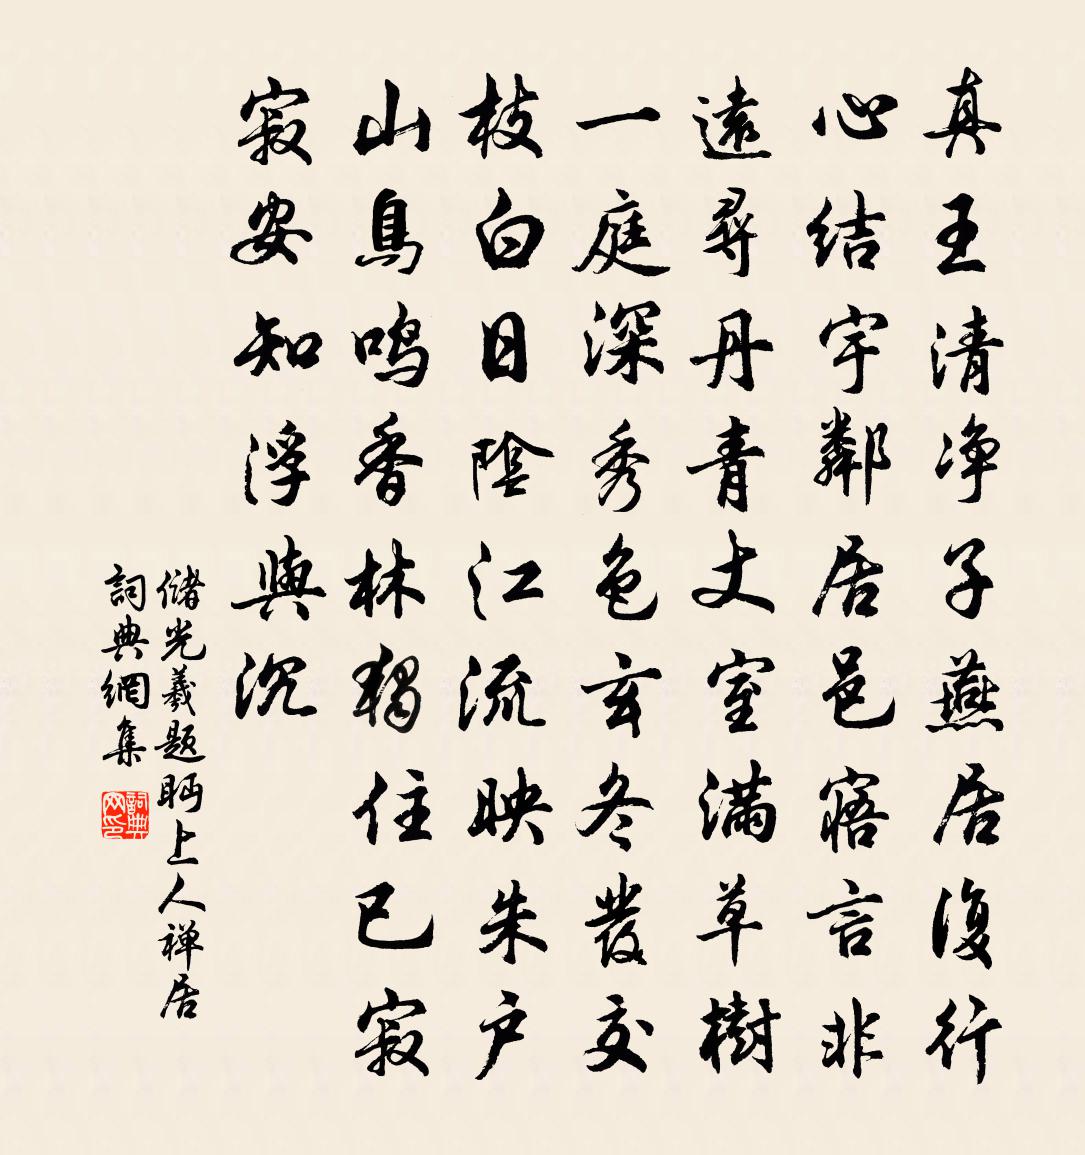 真王清净子燕居復行
心結宇鄰居邑寤言非
遠尋丹青丈室滿草樹
一庭深秀色玄冬發交
枝白日陰江流映朱户
山鳥鳴香林獨住已寂
寂安知浮與沉
儲光羲題眄上人禅居
詞典網集
詞典网印